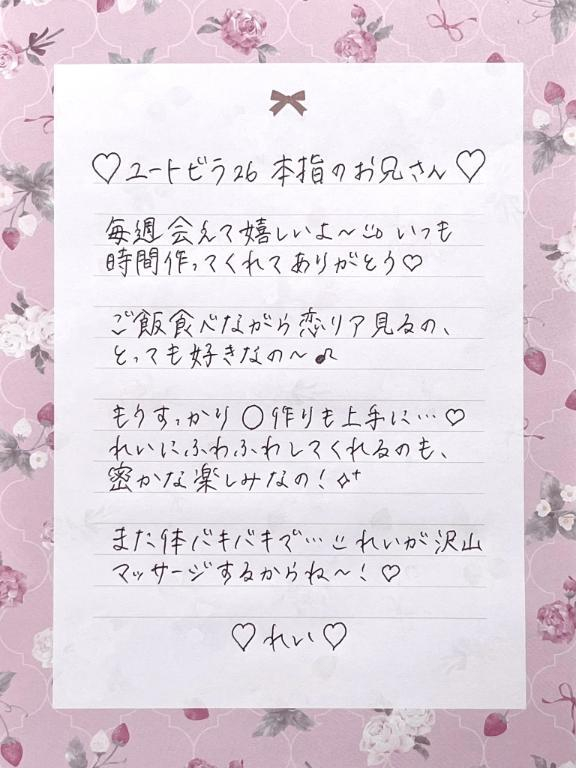 ♡ユートピラ26 本指のお兄さん♡
毎週会えて嬉しいよ〜 いつも
時間作ってくれてありがとう♡
ご飯食べながら恋リア見るの、
とっても好きなの〜♪
もうすっかり〇作りも上手に…♡
れいにふわふわしてくれるのも、
密かな楽しみなの！✧⁺
また体バキバキで… れいが沢山
マッサージするからね〜！♡
♡れい♡